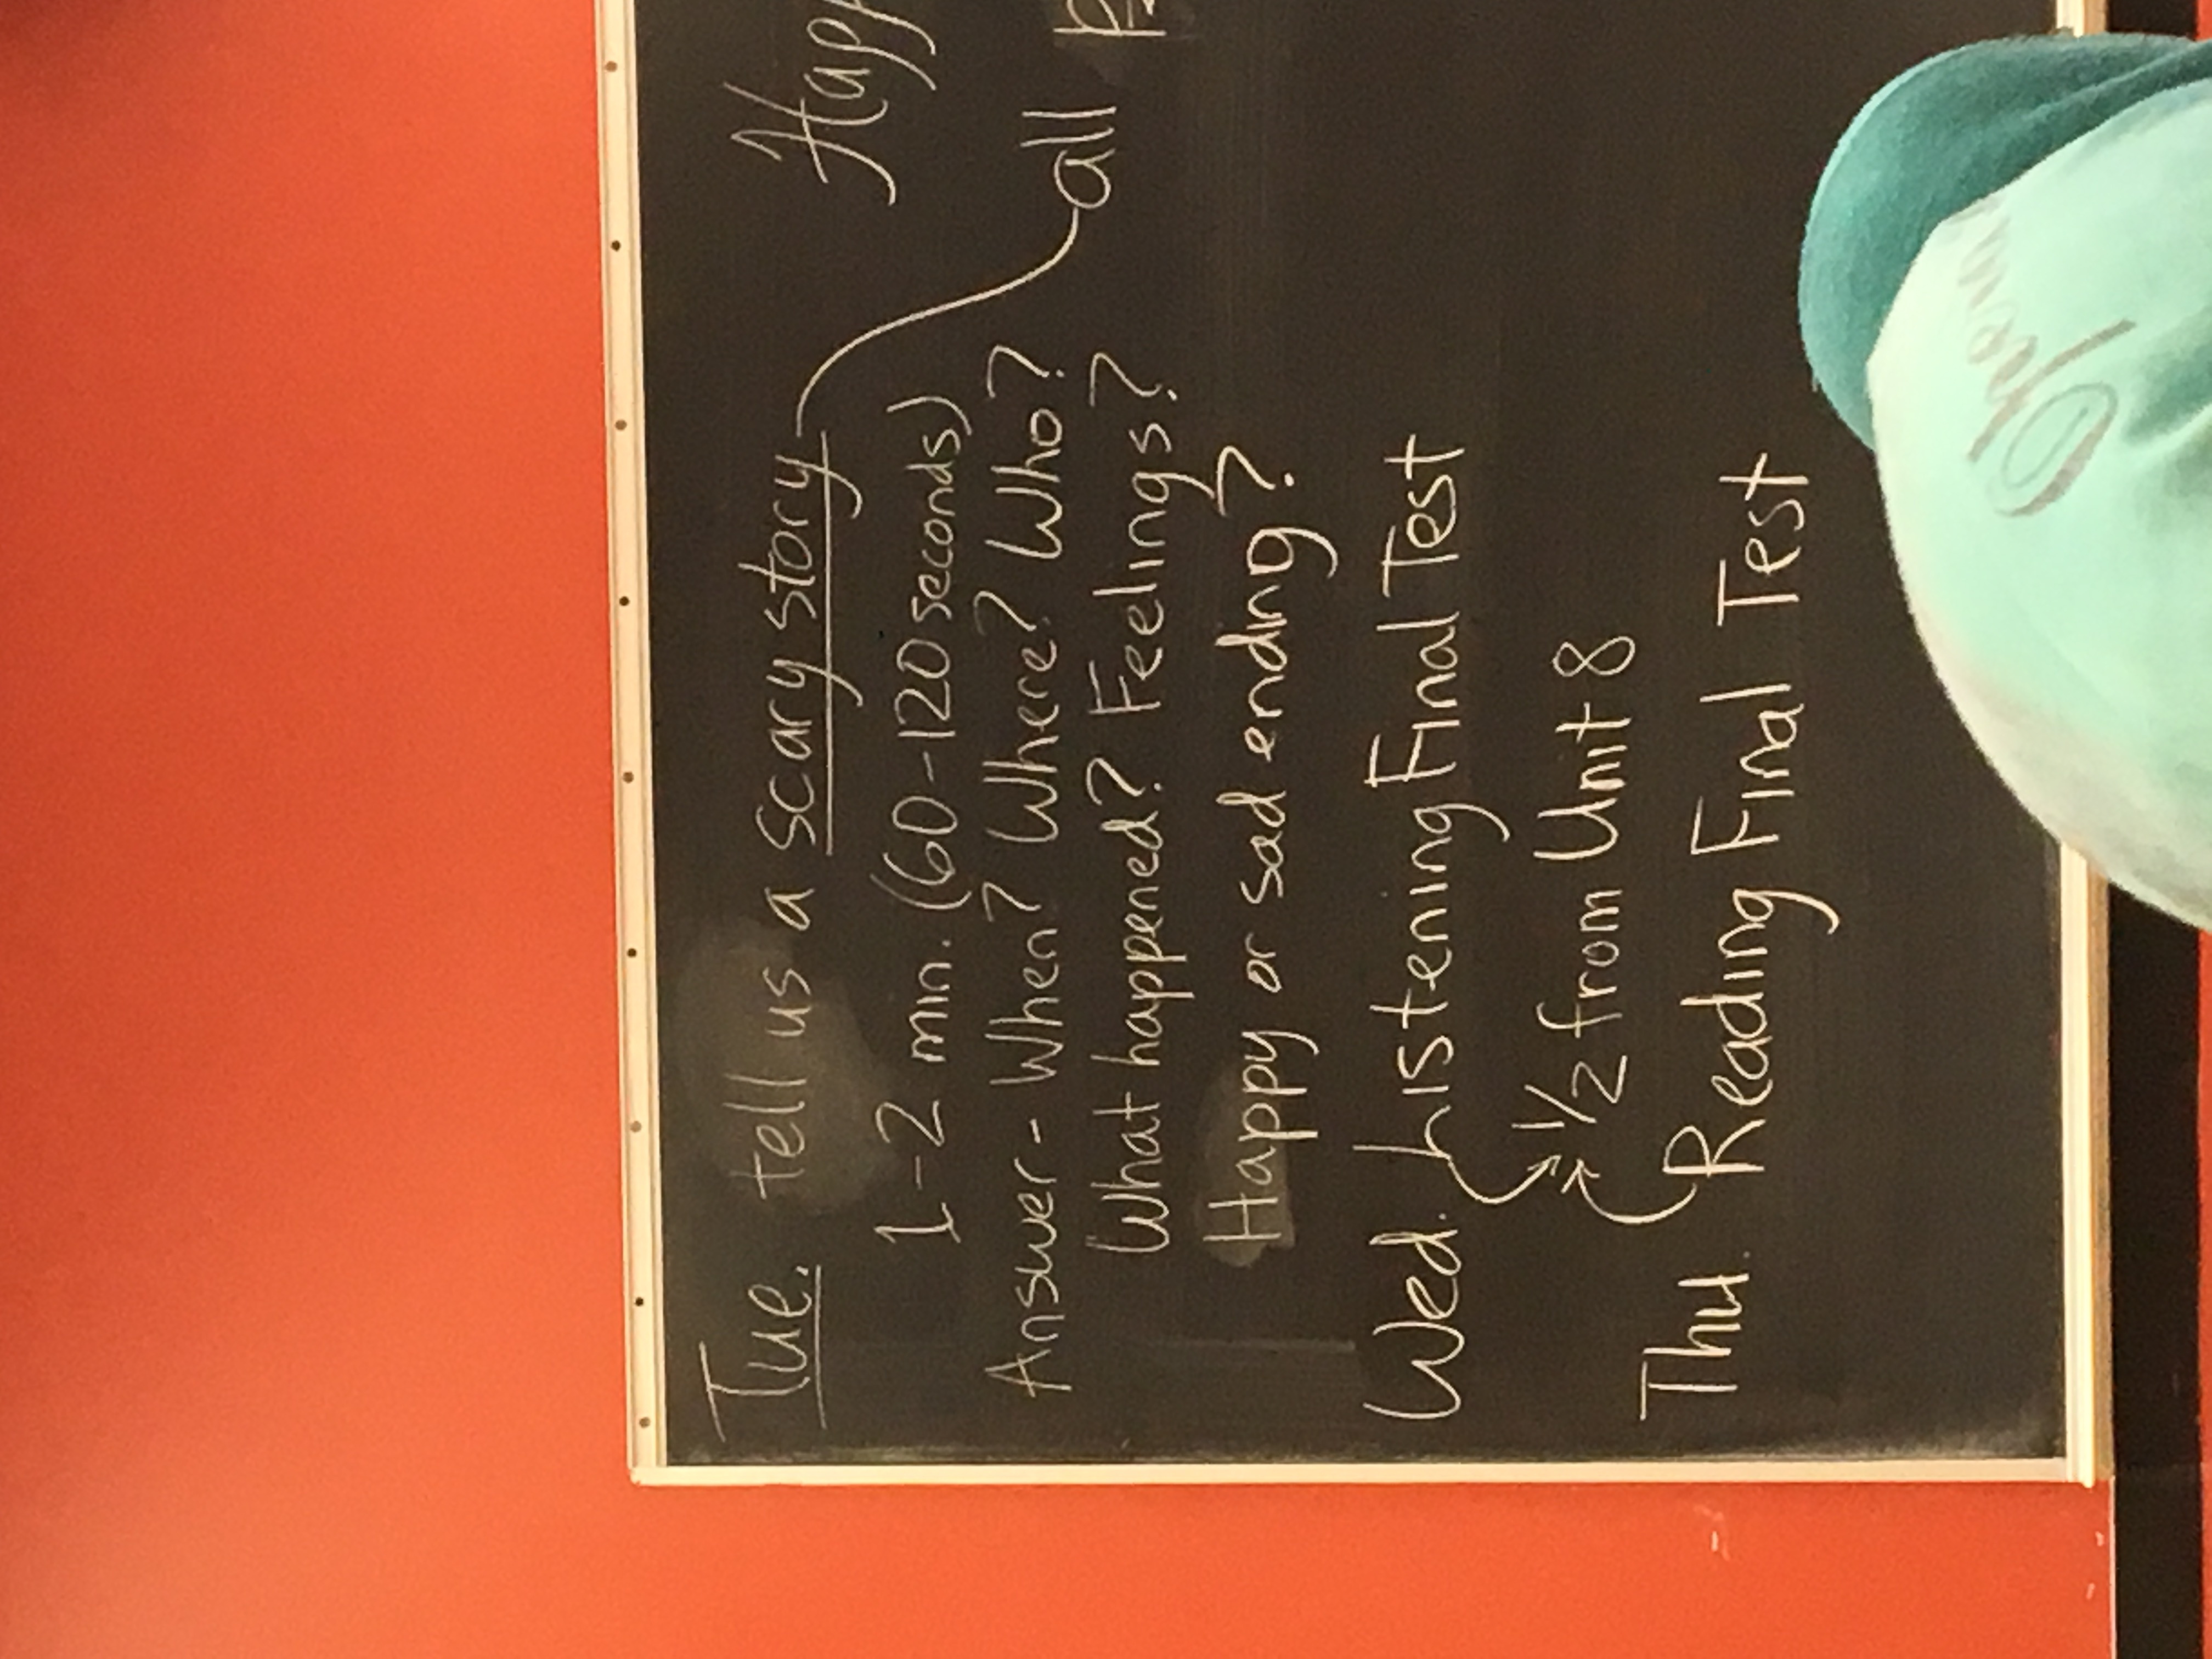 Tue. tell us a scary story
1-2 min. (60-120 seconds)
Answer- When? Where? Who?
What happened? Feelings?
Happy or sad ending?
all
Wed. Listening Final Test
1/2 from Unit 8
Thu. Reading Final Test